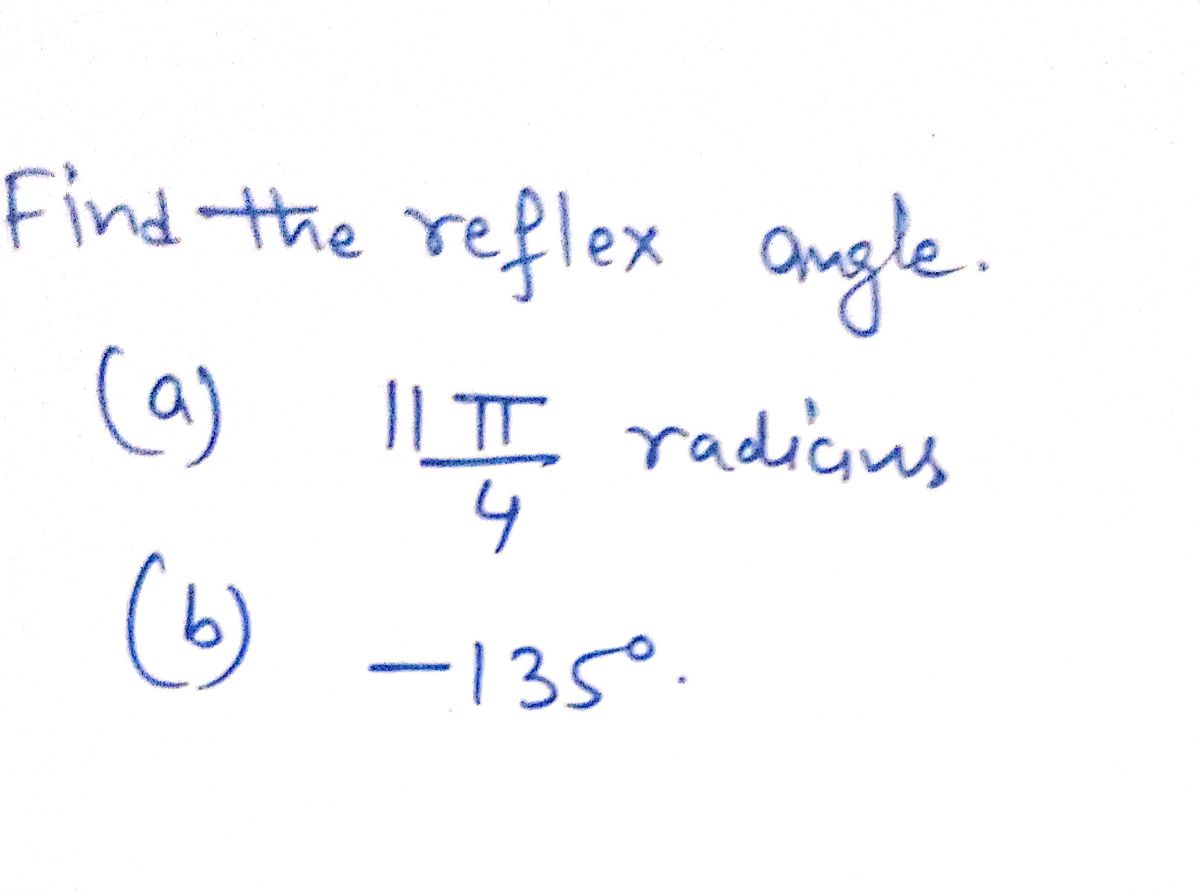 Find the reflex angle.
(a) 11π/4 radians
(b) -135°.